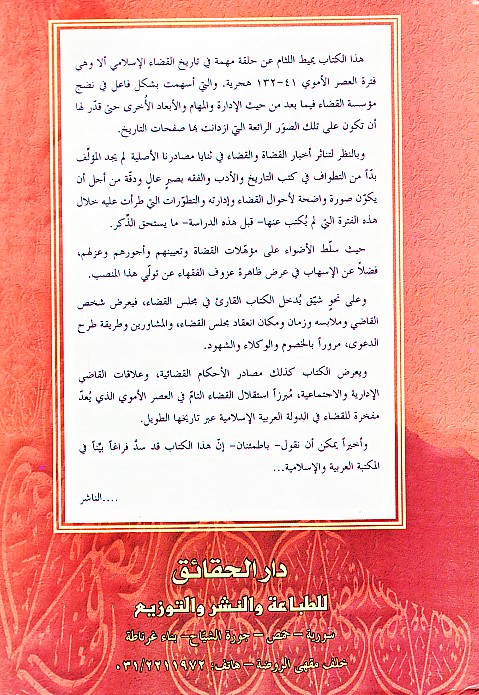 هذا الكتاب يميط اللثام عن حلقة مهمة في تاريخ القضاء الإسلامي ألا وهي
فترة العصر الأموي ٤١-١٣٢ هجرية. والتي أسهمت بشكل فاعل في نضج
مؤسسة القضاء فيما بعد من حيث الإدارة والمهام والأبعاد الأُخرى حتى قدّر لها
أن تكون على تلك الصوَر الرائعة التي ازدانت بها صفحات التاريخ.
وبالنظر لتناثر أخبار القضاة والقضاء في ثنايا مصادرنا الأصلية لم يجد المؤلّف
بدّاً من التطواف في كتب التاريخ والأدب والفقه بصبرٍ عالٍ ودقّة من أجل أن
يكوّن صورة واضحة لأحوال القضاء وإدارته والتطوّرات التي طرأت عليه خلال
هذه الفترة التي لم يُكتب عنها- قبل هذه الدراسة- ما يستحق الذّكر.
حيث سلّط الأضواء على مؤهّلات القضاة وتعيينهم وأجورهم وعزلهم،
فضلاً عن الإسهاب في عرض ظاهرة عزوف الفقهاء عن تولّي هذا المنصب.
وعلى نحوٍ شيّق يُدخل الكتاب القارئ في مجلس القضاء، فيعرض شخص
القاضي وملابسه وزمان ومكان انعقاد مجلس القضاء، والمشاورين وطريقة طرح
الدعوى، مروراً بالخصوم والوكلاء والشهود.
ويعرض الكتاب كذلك مصادر الأحكام القضائية، وعلاقات القاضي
الإدارية والاجتماعية، مُبرزاً استقلال القضاء التامّ في العصر الأموي الذي يُعدّ
مفخرة للقضاء في الدولة العربية الإسلامية عبر تاريخها الطويل.
وأخيراً يمكن أن نقول- باطمئنان- إنّ هذا الكتاب قد سدّ فراغاً بيّناً في
المكتبة العربية والإسلامية...
....الناشر
دار الحقائق
للطباعة والنشر والتوزيع
سورية - حمص - جورة الشيّاح - بناء غرناطة
خلف مقهى الروضة - هاتف: ٠٣١/٢٢١١٩٧٢